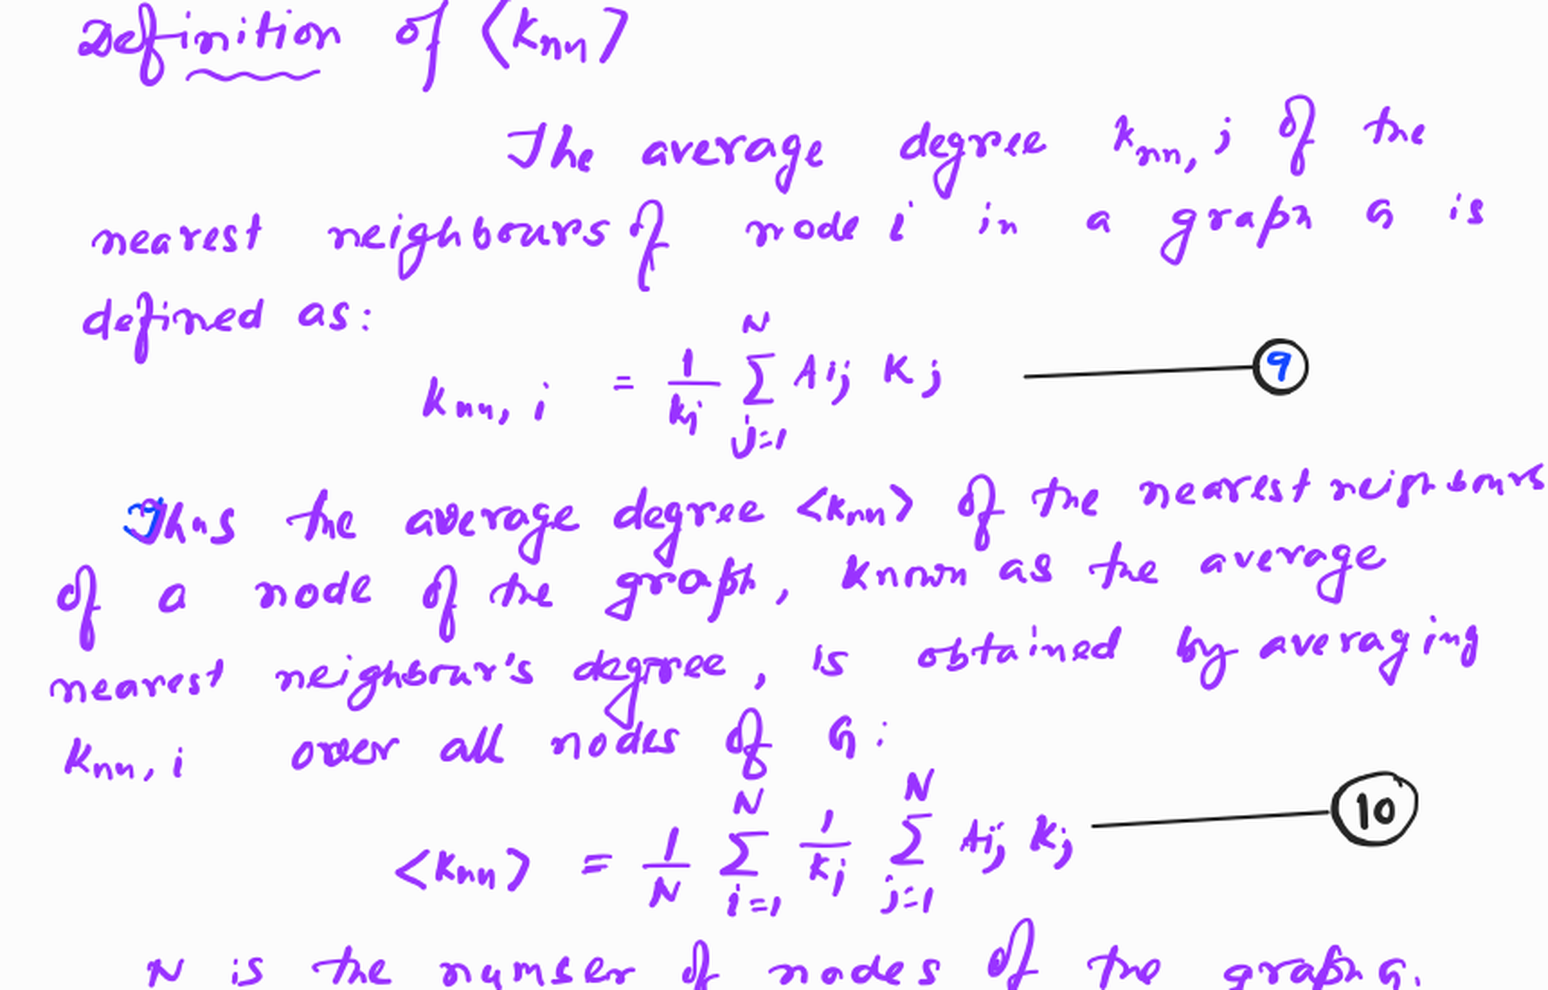 Definition of ⟨knn⟩
The average degree knn, i of the
nearest neighbours of node i in a graph G is
defined as:
knn, i = 1/ki ∑_{j=1}^{N} Aij Kj ——— 9
Thus the average degree <knn> of the nearest neighbours
of a node of the graph, known as the average
nearest neighbour's degree, is obtained by averaging
knn, i over all nodes of G:
<knn> = 1/N ∑_{i=1}^{N} 1/ki ∑_{j=1}^{N} Aij kj ——— 10
N is the number of nodes of the graph G.